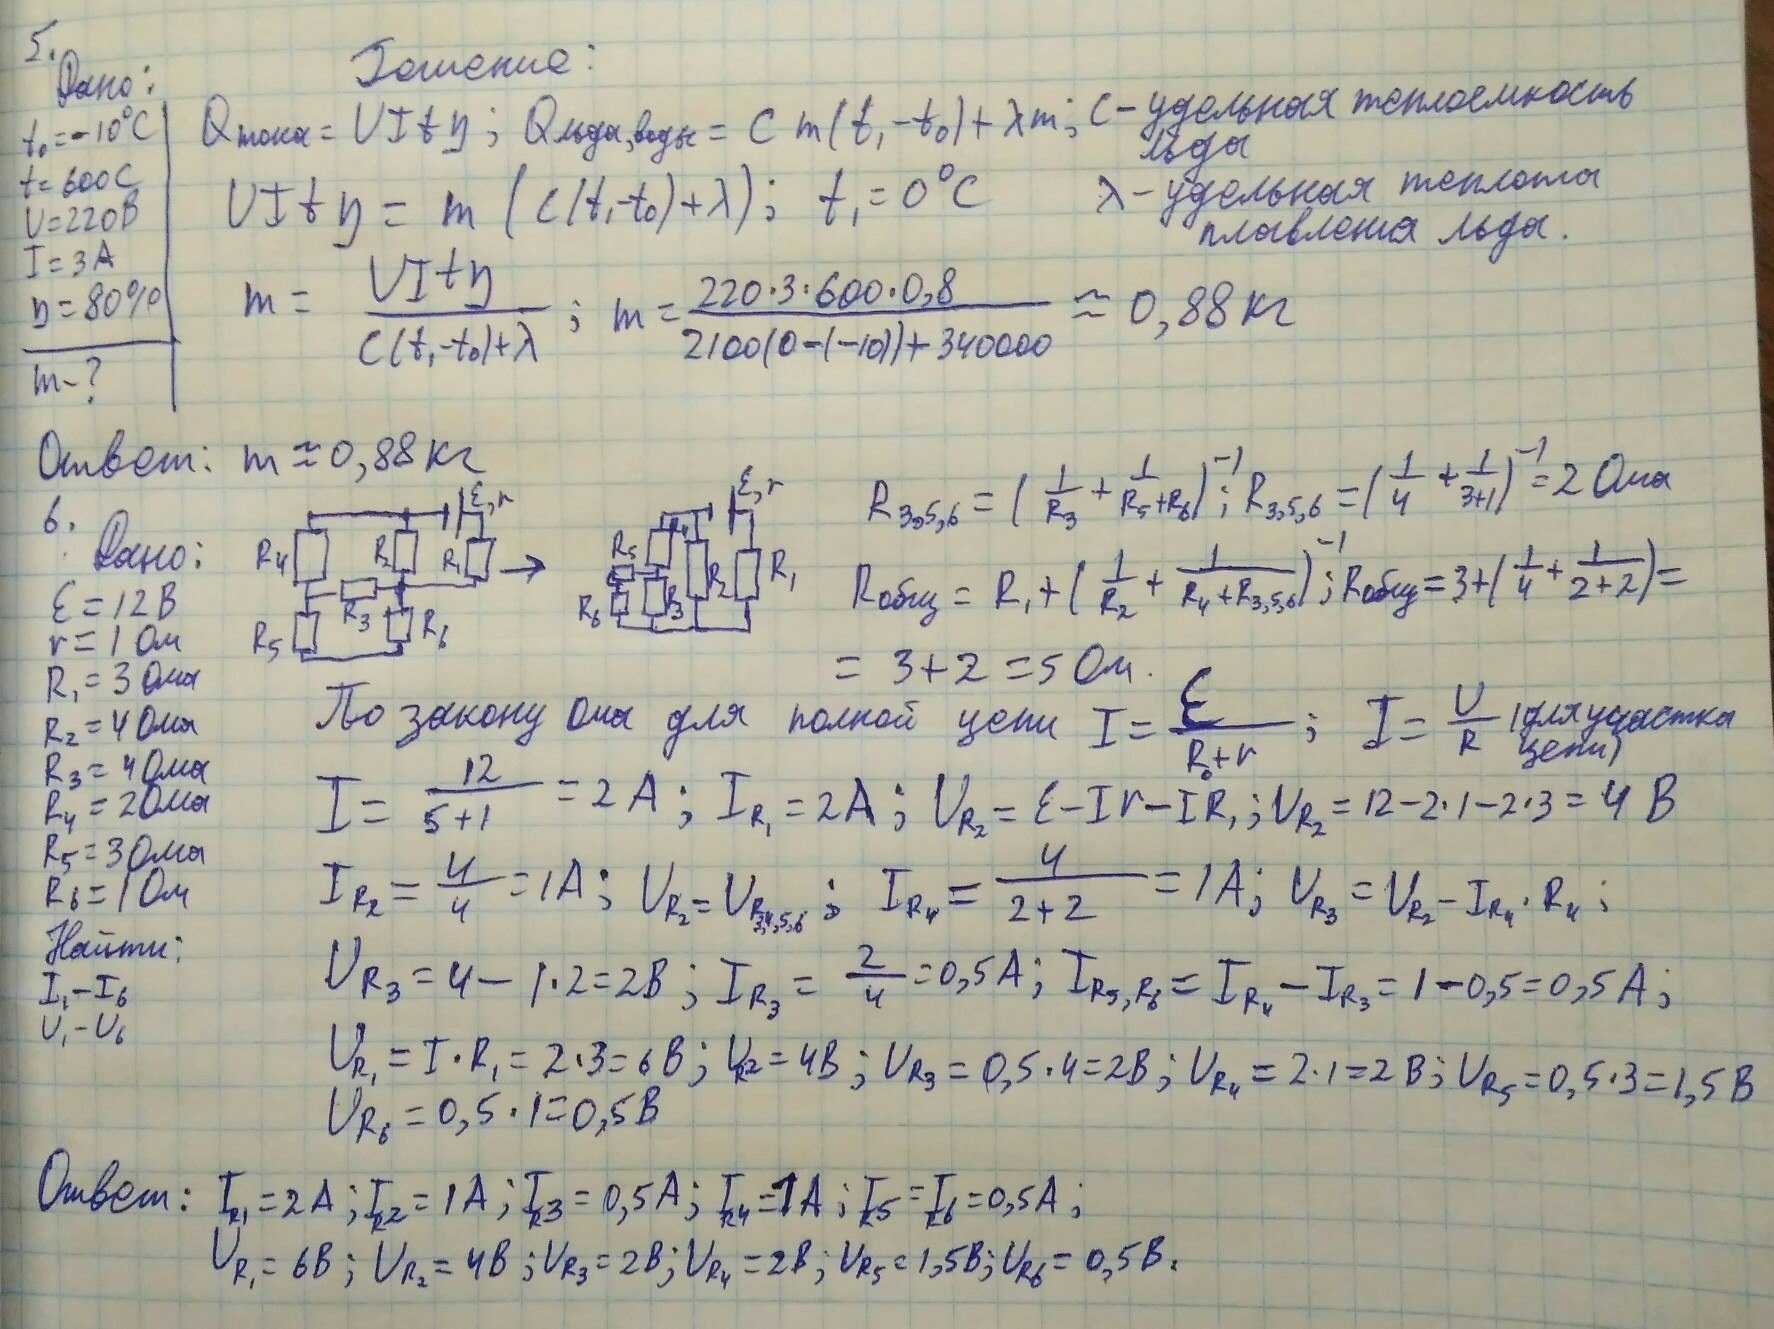 5.
Дано:
t₀=-10°C
t=600С
U=220В
I=3А
η=80%
m-?
Решение:
Qтока = UItη; Qльда,воды = c m(t₁-t₀)+λm; c-удельная теплоемкость льда
UItη = m (c(t₁-t₀)+λ); t₁=0°C λ-удельная теплота плавления льда.
m = UItη / (c(t₁-t₀)+λ); m = 220·3·600·0,8 / (2100(0-(-10))+340000) ≈ 0,88кг
Ответ: m≈0,88кг
6.
Дано:
ℰ=12В
r=1Ом
R₁=3Ома
R₂=4Ома
R₃=4Ома
R₄=2Ома
R₅=3Ома
R₆=1Ом
Найти:
I₁-I₆
U₁-U₆
ℰ,r
R₄ R₂ R₁
R₃
R₅ R₆
→
ℰ,r
R₅ R₄ R₂ R₁
R₆ R₃
R₃,₅,₆ = (1/R₃ + 1/(R₅+R₆))⁻¹; R₃,₅,₆ = (1/4 + 1/(3+1))⁻¹ = 2 Ома
Rобщ = R₁+(1/R₂ + 1/(R₄+R₃,₅,₆))⁻¹; Rобщ = 3+(1/4 + 1/(2+2)) =
= 3+2 = 5 Ом.
По закону Ома для полной цепи I = ℰ/(R₀+r); I = U/R (для участка цепи)
I = 12/(5+1) = 2А; I_R₁ = 2А; U_R₂ = ℰ-Ir-IR₁; U_R₂ = 12-2·1-2·3 = 4 В
I_R₂ = 4/4 = 1А; U_R₂ = U_R₃,₄,₅,₆; I_R₄ = 4/(2+2) = 1А; U_R₃ = U_R₂-I_R₄·R₄;
U_R₃ = 4-1·2=2В; I_R₃ = 2/4 = 0,5А; I_R₅,R₆ = I_R₄-I_R₃ = 1-0,5=0,5А;
U_R₁ = I·R₁ = 2·3=6В; U_R2=4В; U_R₃ = 0,5·4=2В; U_R₄ = 2·1=2В; U_R₅=0,5·3=1,5В
U_R₆ = 0,5·1=0,5В
Ответ: I_R₁=2А; I_R2=1А; I_R3=0,5А; I_R4=1А; I_R5=I_R6=0,5А;
U_R₁=6В; U_R₂=4В; U_R₃=2В; U_R₄=2В; U_R₅=1,5В; U_R₆=0,5В.